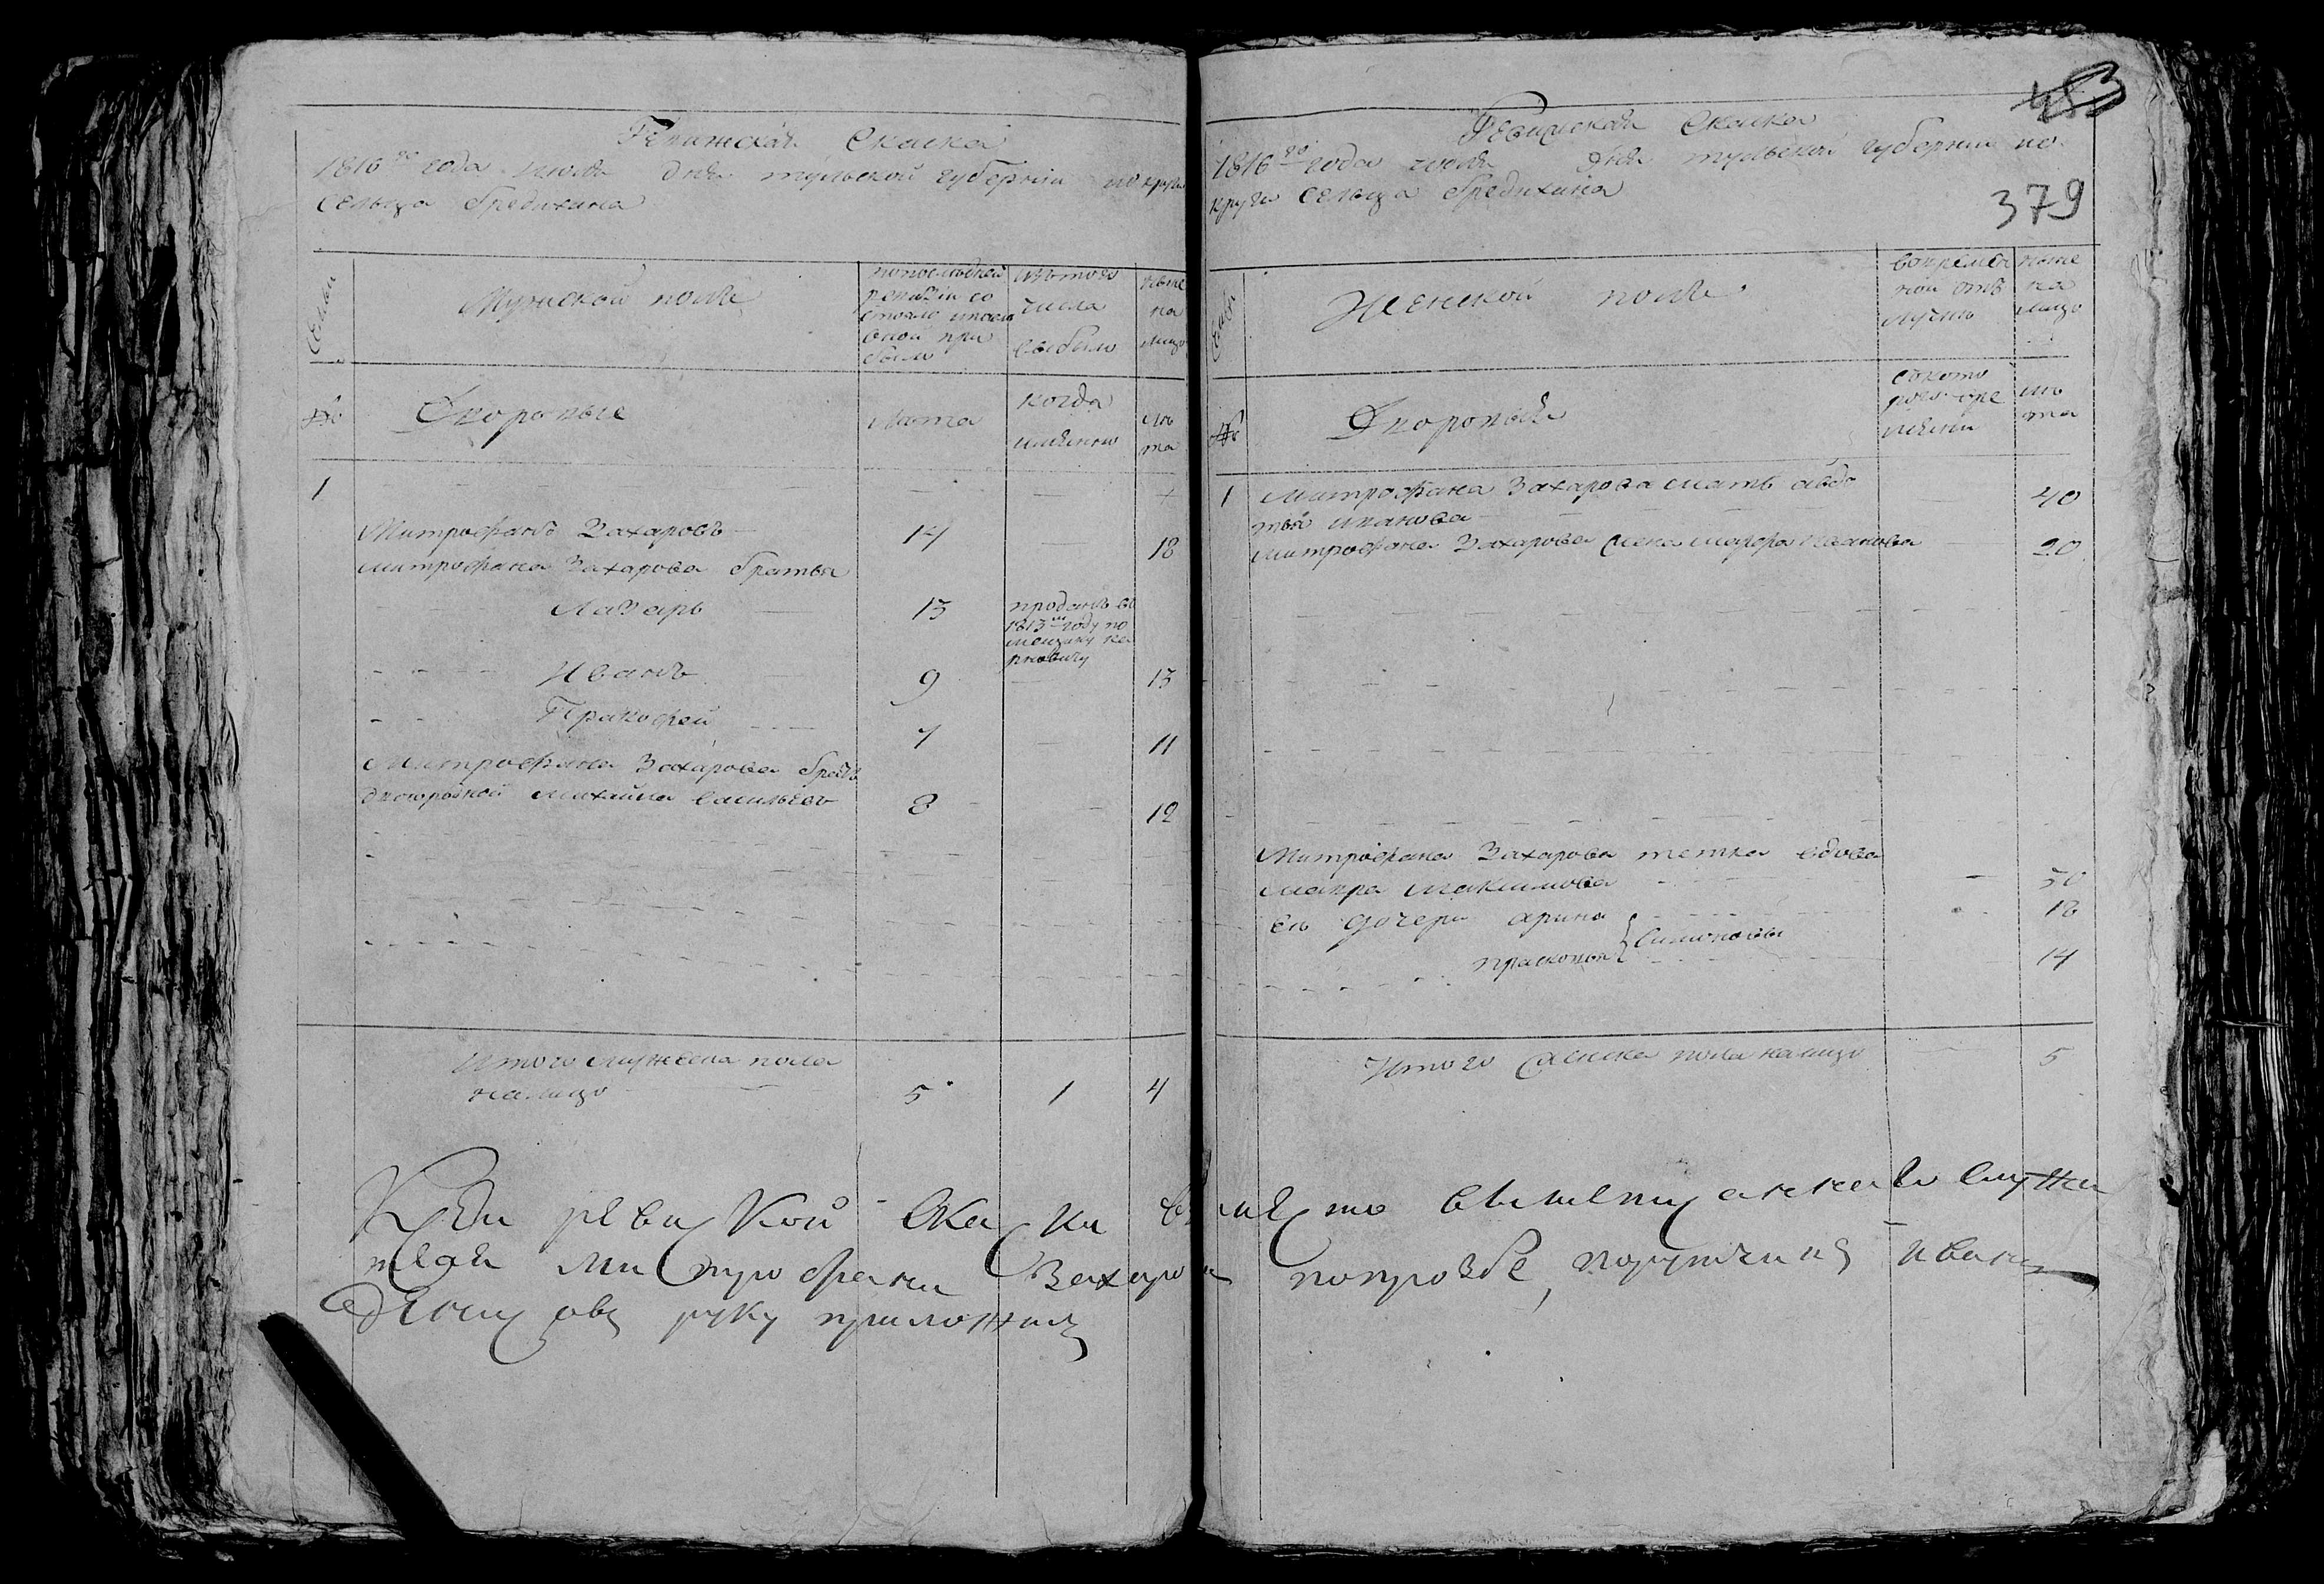 Ревижская Скаска
1816го года июля дня тульской губернии по круги
сельца бредихина
Семьи
Мужской полъ
попоследней ревизии состояло и после оной прибыло
изъ того числа выбыло
ныне на лицо
№
Дворовые
лета
когда имянно
лета
1
Митрофанъ Захаровъ 14 18
Митрофана Захарова братья
Лазарь 15 проданъ въ 1813м году помещику
Иванъ 9 13
Пракофей 7 11
Митрофана Захарова братъ
двоюродной Михайла васильевъ 8 12
Итого мужеска пола
налицо 5 1 4
453
Ревижская Скаска
1816го года июля дня тульской губернии по
круги сельца бредихина
379
Семьи
Женской полъ
во временной отлучке
ныне на лицо
№
Дворовыя
съ которого времени
лета
1 Митрофана Захарова мать авдо
тья иванова 40
митрофана Захарова жена марфа иванова 20
Митрофана Захарова тетка вдова
мавра максимова 50
ея дочери арина 18
прасковья 14
Итого женска пола налицо 5
К сей ревиской скаски вместо вышеписаннаго служи
теля митрофана Захарова попрозбе, порутчикъ иванъ
руку приложилъ